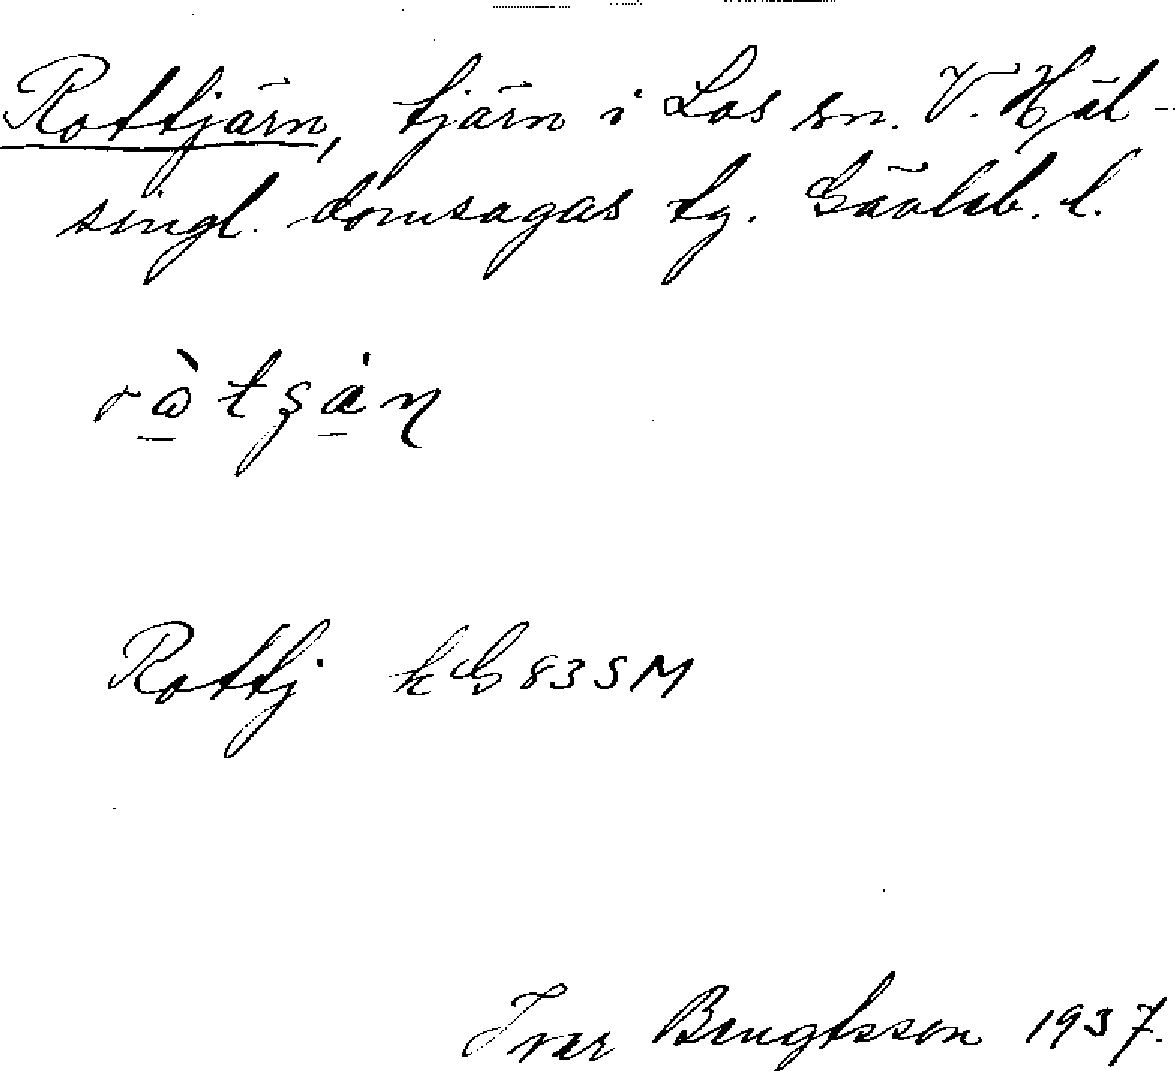 Rottjärn, tjärn i Los sn. V. Häl-
singl. domsagas tg. Gävleb. l.
Rottj kG 83 SM
Ivar Bengtsson 1937.